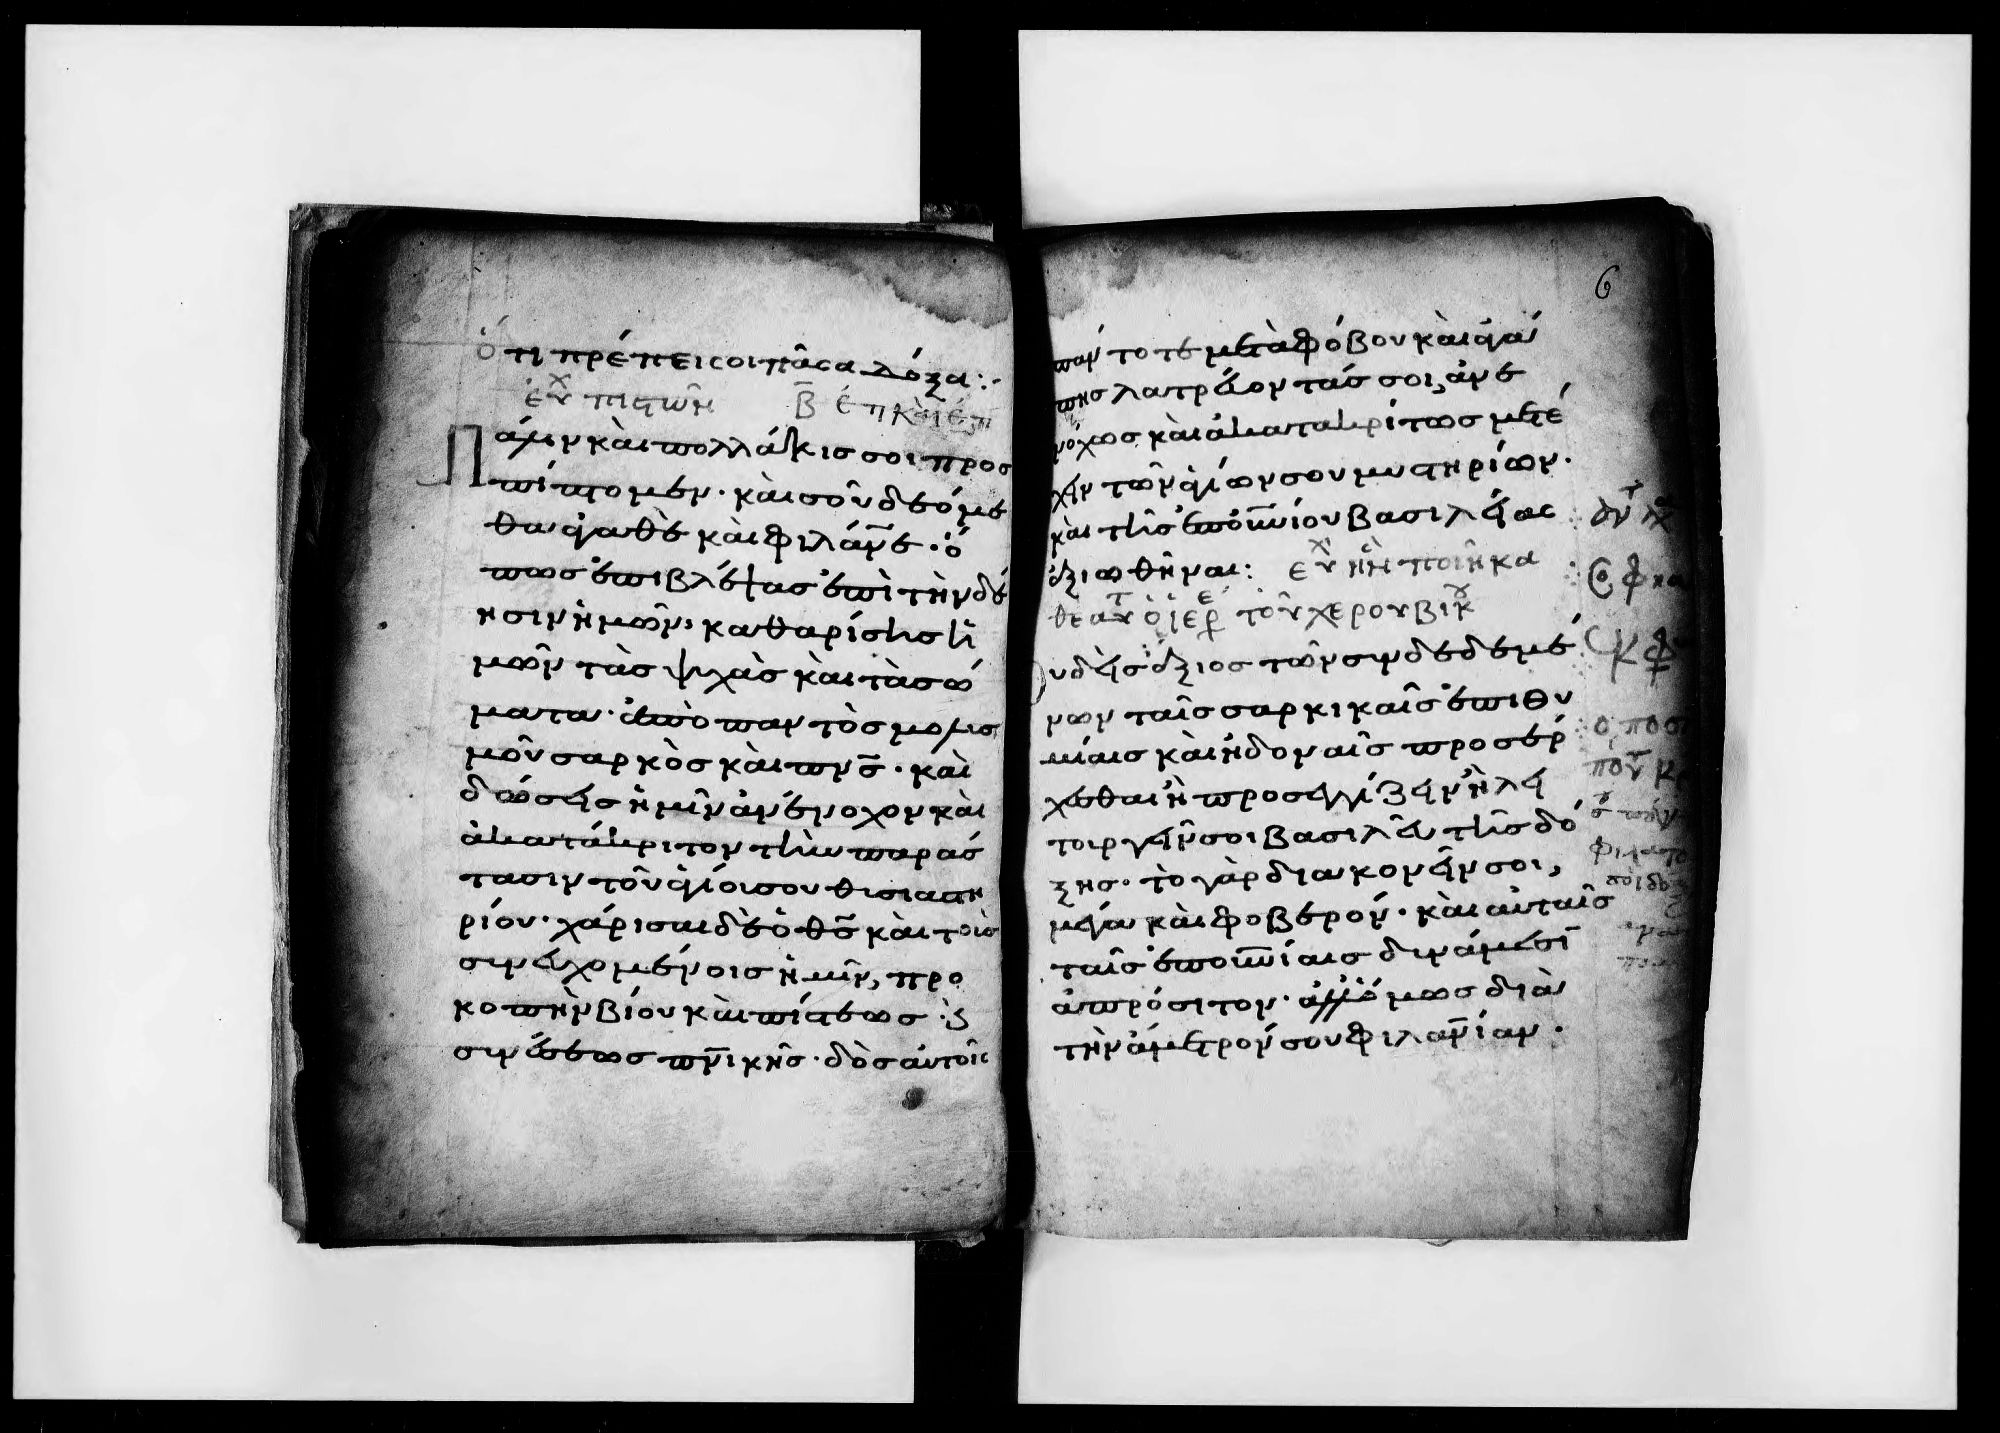 ὅτι πρέπει σοι πᾶσα δόξα:·
εὐχ πιστῶν β ἐπκλήεπ
Πάλιν καὶ πολλάκις σοι προσ
πίπτομεν· καὶ σοῦ δεόμε
θα ἀγαθὲ καὶ φιλάνε· ὅ
πως ἐπιβλέψας ἐπὶ τὴν δέ
ησιν ἡμῶν, καθαρίσης ἡ
μῶν τὰς ψυχὰς καὶ τὰ σώ
ματα· ἀπὸ παντὸς μολυσ
μοῦ σαρκὸς καὶ πνς· καὶ
δώσεις ἡμῖν ἀνένοχον καὶ
ἀκατάκριτον τὴν παράσ
τασιν τοῦ ἁγίοισου θισιαστη
ρίου· χάρισαι δὲ ὁ θς καὶ τοῖς
συνευχομένοις ἡμῖν, προ
κοπὴν βίου καὶ πίστεως ·ϗ
συνέσεως πνικῆς· δὸς αὐτοῖς
πάντοτε μετὰ φόβου καὶ ἀγά
πης λατρεύοντάς σοι, ἀνε
νόχως καὶ ἀκατακρίτως μετέ
χειν τῶν ἁγίων σου μυστηρίων·
καὶ τῆς ἐπουνίου βασιλείας
ἀξιωθῆναι: εὐχ ἣν ποιῆ κα
θεαυτ ὁ ἱερε τοῦ χερουβικου
Ουδεὶς ἄξιος τῶν συνδεδεμέ
νων ταῖς σαρκικαῖς ἐπιθυ
μίαις καὶ ἡδοναῖς προσέρ
χεσθαι ἢ προσεγγίζειν ἢ λει
τουργεῖν σοι βασιλεῦ τῆς δό
ξης· τὸ γὰρ διακονεῖν σοι,
μέγα καὶ φοβερόν· καὶ αὐταῖς
ταῖς ἐπουνίαις δυνάμεσι
ἀπρόσιτον· ἀλλ' ὅμως διὰ
τὴν ἄμετρόν σου φιλανίαν·
6